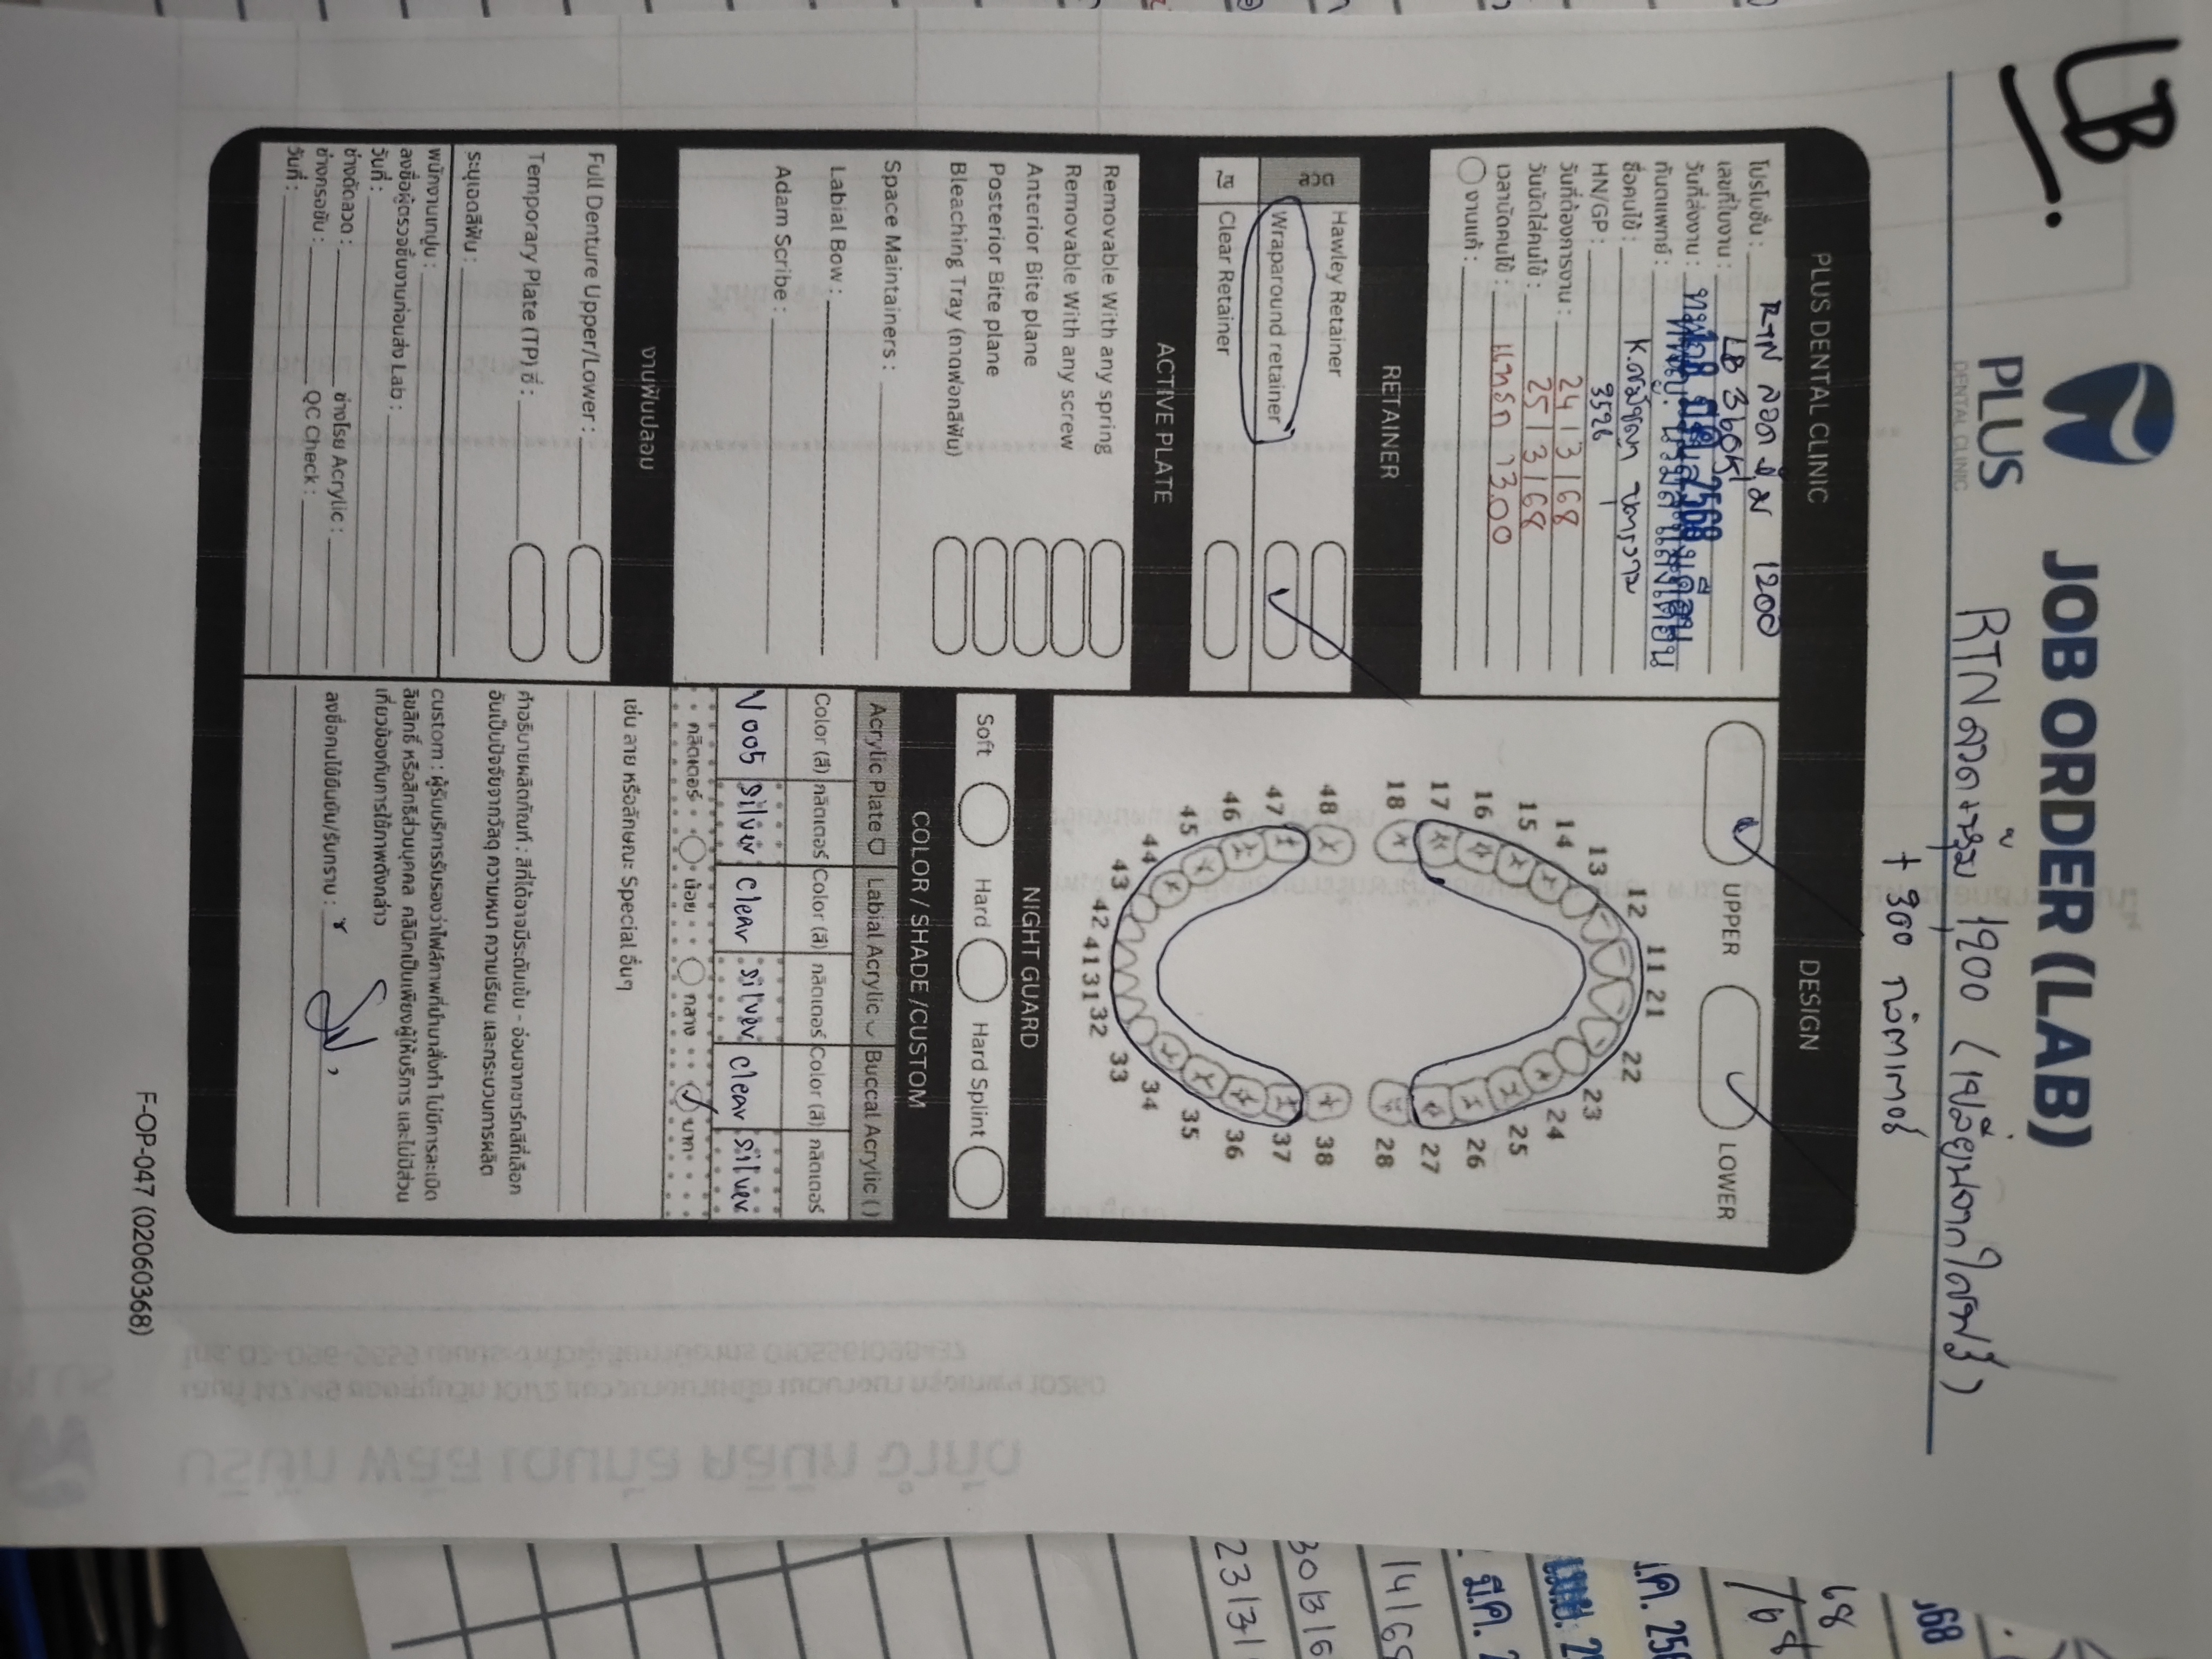 LB
PLUS
DENTAL CLINIC
JOB ORDER (LAB)
RTN ลวดหุ้ม 1200 (เปลี่ยนจากใสฟรี)
+ 300 กลิตเตอร์
PLUS DENTAL CLINIC
โปรโมชั่น : RTN ลวดหุ้ม 1200
เลขที่ใบงาน : LB
วันที่ส่งงาน :
ทันตแพทย์ :
ชื่อคนไข้ : K.
HN/GP : 3526
วันที่ต้องการงาน : 24 / 3 / 68
วันนัดใส่คนไข้ : 25 / 3 / 68
เวลานัดคนไข้ : แทรก 13.00
งานแก้ :
RETAINER
ลวด
Hawley Retainer
Wraparound retainer
ใส
Clear Retainer
ACTIVE PLATE
Removable With any spring
Removable With any screw
Anterior Bite plane
Posterior Bite plane
Bleaching Tray (ถาดฟอกสีฟัน)
Space Maintainers :
Labial Bow :
Adam Scribe :
งานฟันปลอม
Full Denture Upper/Lower :
Temporary Plate (TP) ซี่ :
ระบุเฉดสีฟัน :
พนักงานเทปูน :
ลงชื่อผู้ตรวจชิ้นงานก่อนส่ง Lab :
วันที่ :
ช่างดัดลวด : ช่างโรย Acrylic :
ช่างกรอขัด : QC Check :
วันที่ :
DESIGN
UPPER LOWER
11 21
12 22
13 23
14 24
15 25
16 26
17 27
18 28
48 38
47 37
46 36
45 35
44 34
43 33
42 41 31 32
NIGHT GUARD
Soft Hard Hard Splint
COLOR / SHADE /CUSTOM
Acrylic Plate Labial Acrylic Buccal Acrylic ( )
Color (สี) กลิตเตอร์ Color (สี) กลิตเตอร์ Color (สี) กลิตเตอร์
V005 silver clear silver clear silver
กลิตเตอร์ น้อย กลาง มาก
เช่น ลาย หรือลักษณะ Special อื่นๆ
คำอธิบายผลิตภัณฑ์ : สีที่ได้อาจมีระดับเข้ม - อ่อนจากชาร์ทสีที่เลือก
อันเป็นปัจจัยจากวัสดุ ความหนา ความเรียบ และกระบวนการผลิต
custom : ผู้รับบริการรับรองว่าไฟล์ภาพที่นำมาสั่งทำ ไม่มีการละเมิด
ลิขสิทธิ์ หรือสิทธิส่วนบุคคล คลินิกเป็นเพียงผู้ให้บริการ และไม่มีส่วน
เกี่ยวข้องกับการใช้ภาพดังกล่าว
ลงชื่อคนไข้ยืนยัน/รับทราบ :
F-OP-047 (02060368)